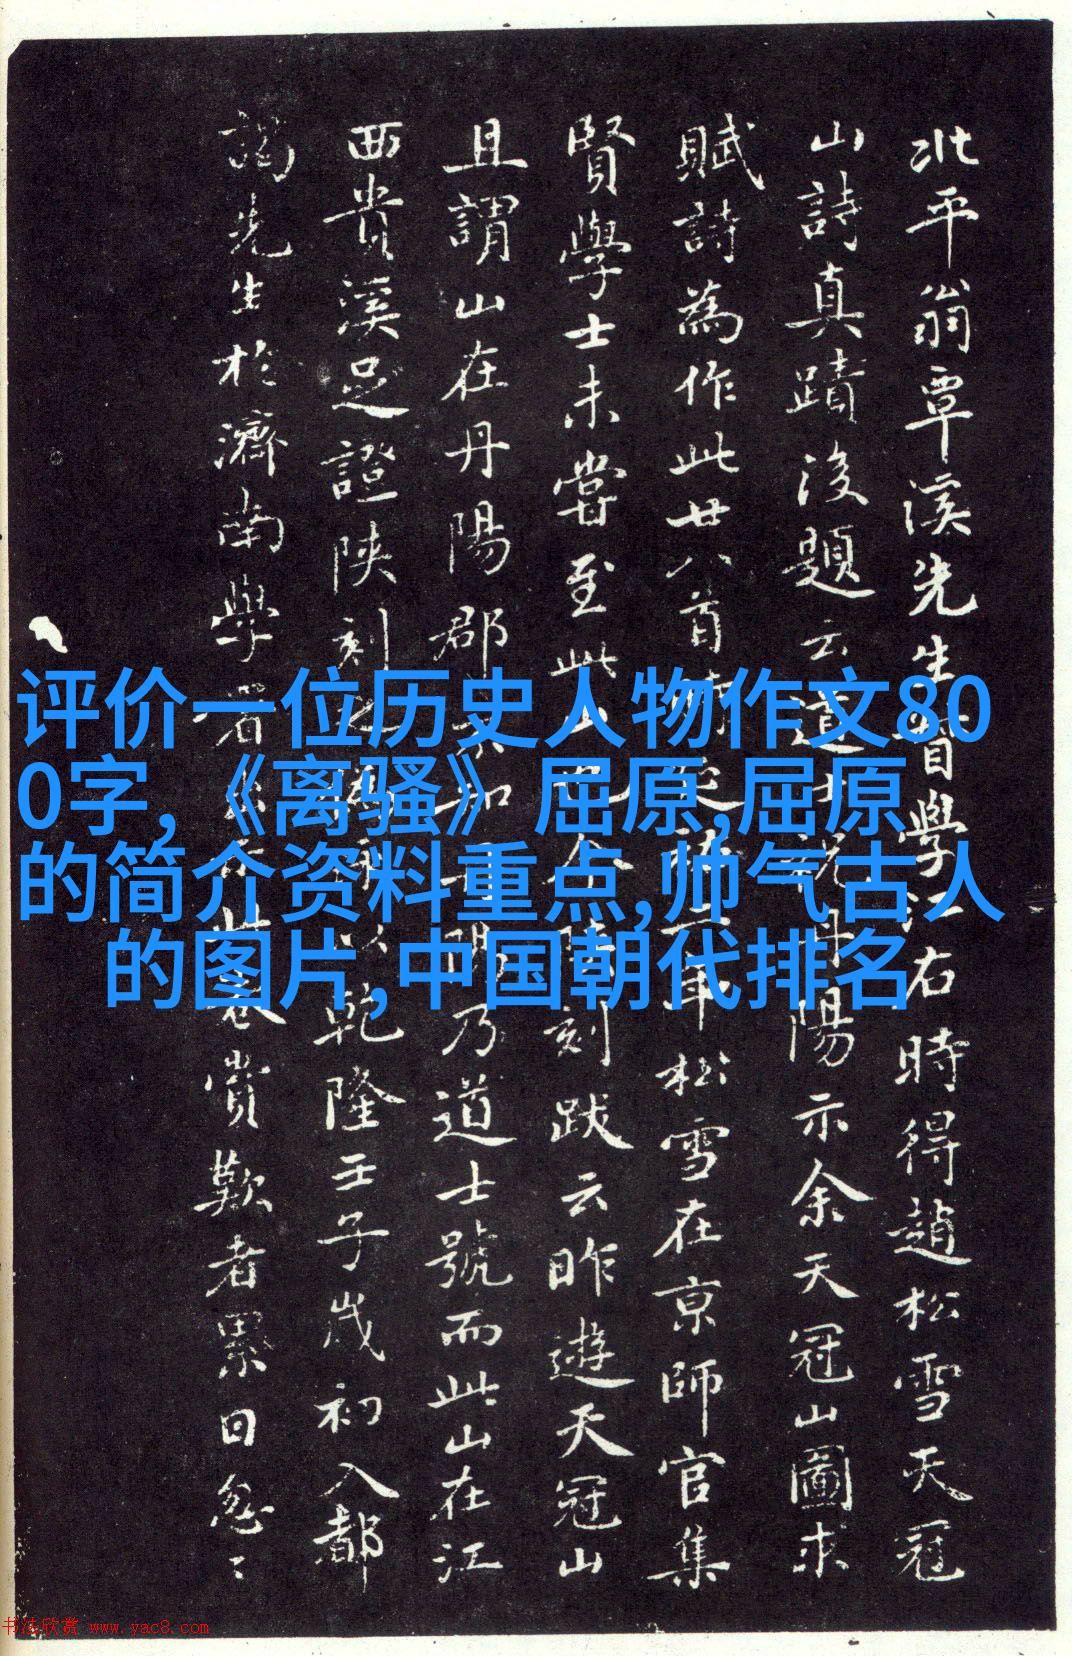 评价一位历史人物作文80
0字,《离骚》屈原,屈原
的简介资料重点,帅气古人
的图片,中国朝代排名
北平翁覃溪先生督學江右時得趙松雪天冠
山詩真蹟後題云道士祝丹陽示余天冠山圖求
賦詩為作此廿八首延祐二年松雪在京師官集
賢學士未嘗至此山也刻跋云昨遊天冠山
且謂山在丹陽郡不知丹陽乃道士號而此山在江
西貴溪足證陝刻之偽以乾隆壬子歲初入都
謁先生於濟南學署此卷賞歎者累日怱〻
书法欣赏 www.yac8.com